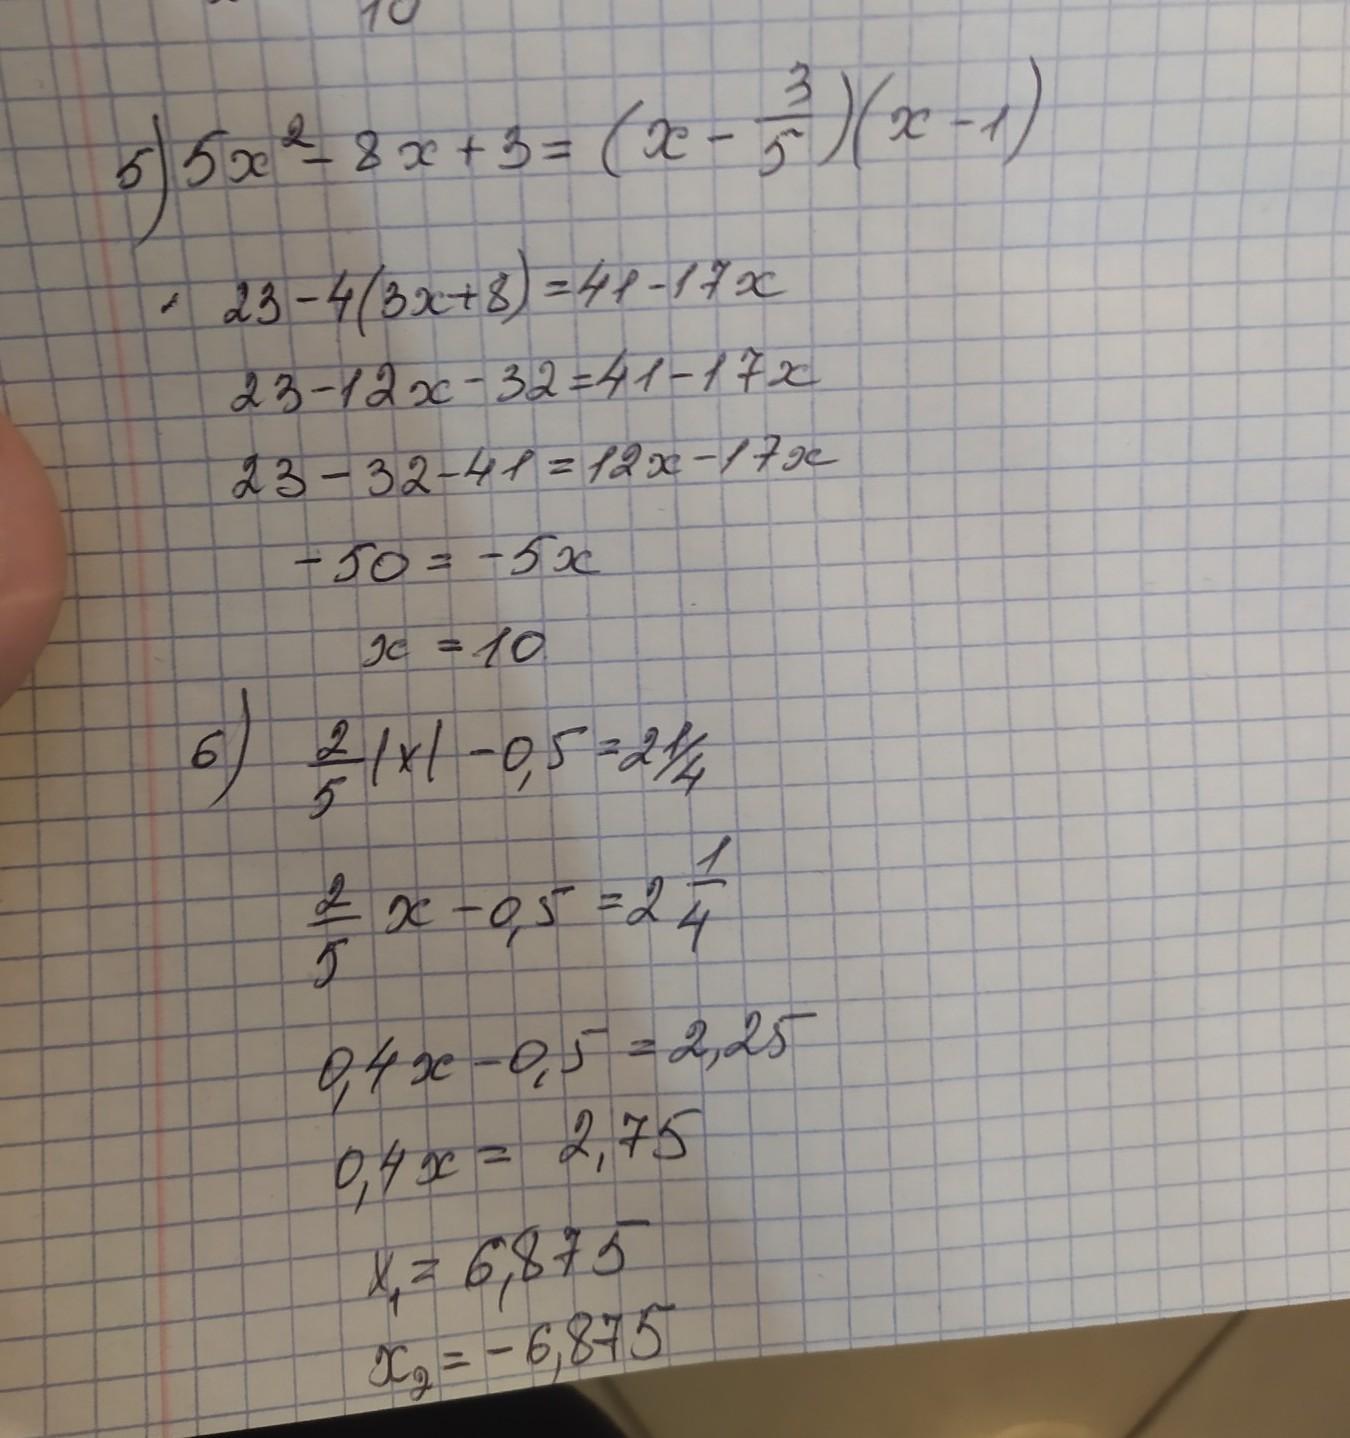 10
5) 5x² - 8x + 3 = (x - 3/5)(x - 1)
23 - 4(3x+8) = 41 - 17x
23 - 12x - 32 = 41 - 17x
23 - 32 - 41 = 12x - 17x
-50 = -5x
x = 10
6) 2/5 |x| - 0,5 = 2 1/4
2/5 x - 0,5 = 2 1/4
0,4x - 0,5 = 2,25
0,4x = 2,75
x₁ = 6,875
x₂ = -6,875